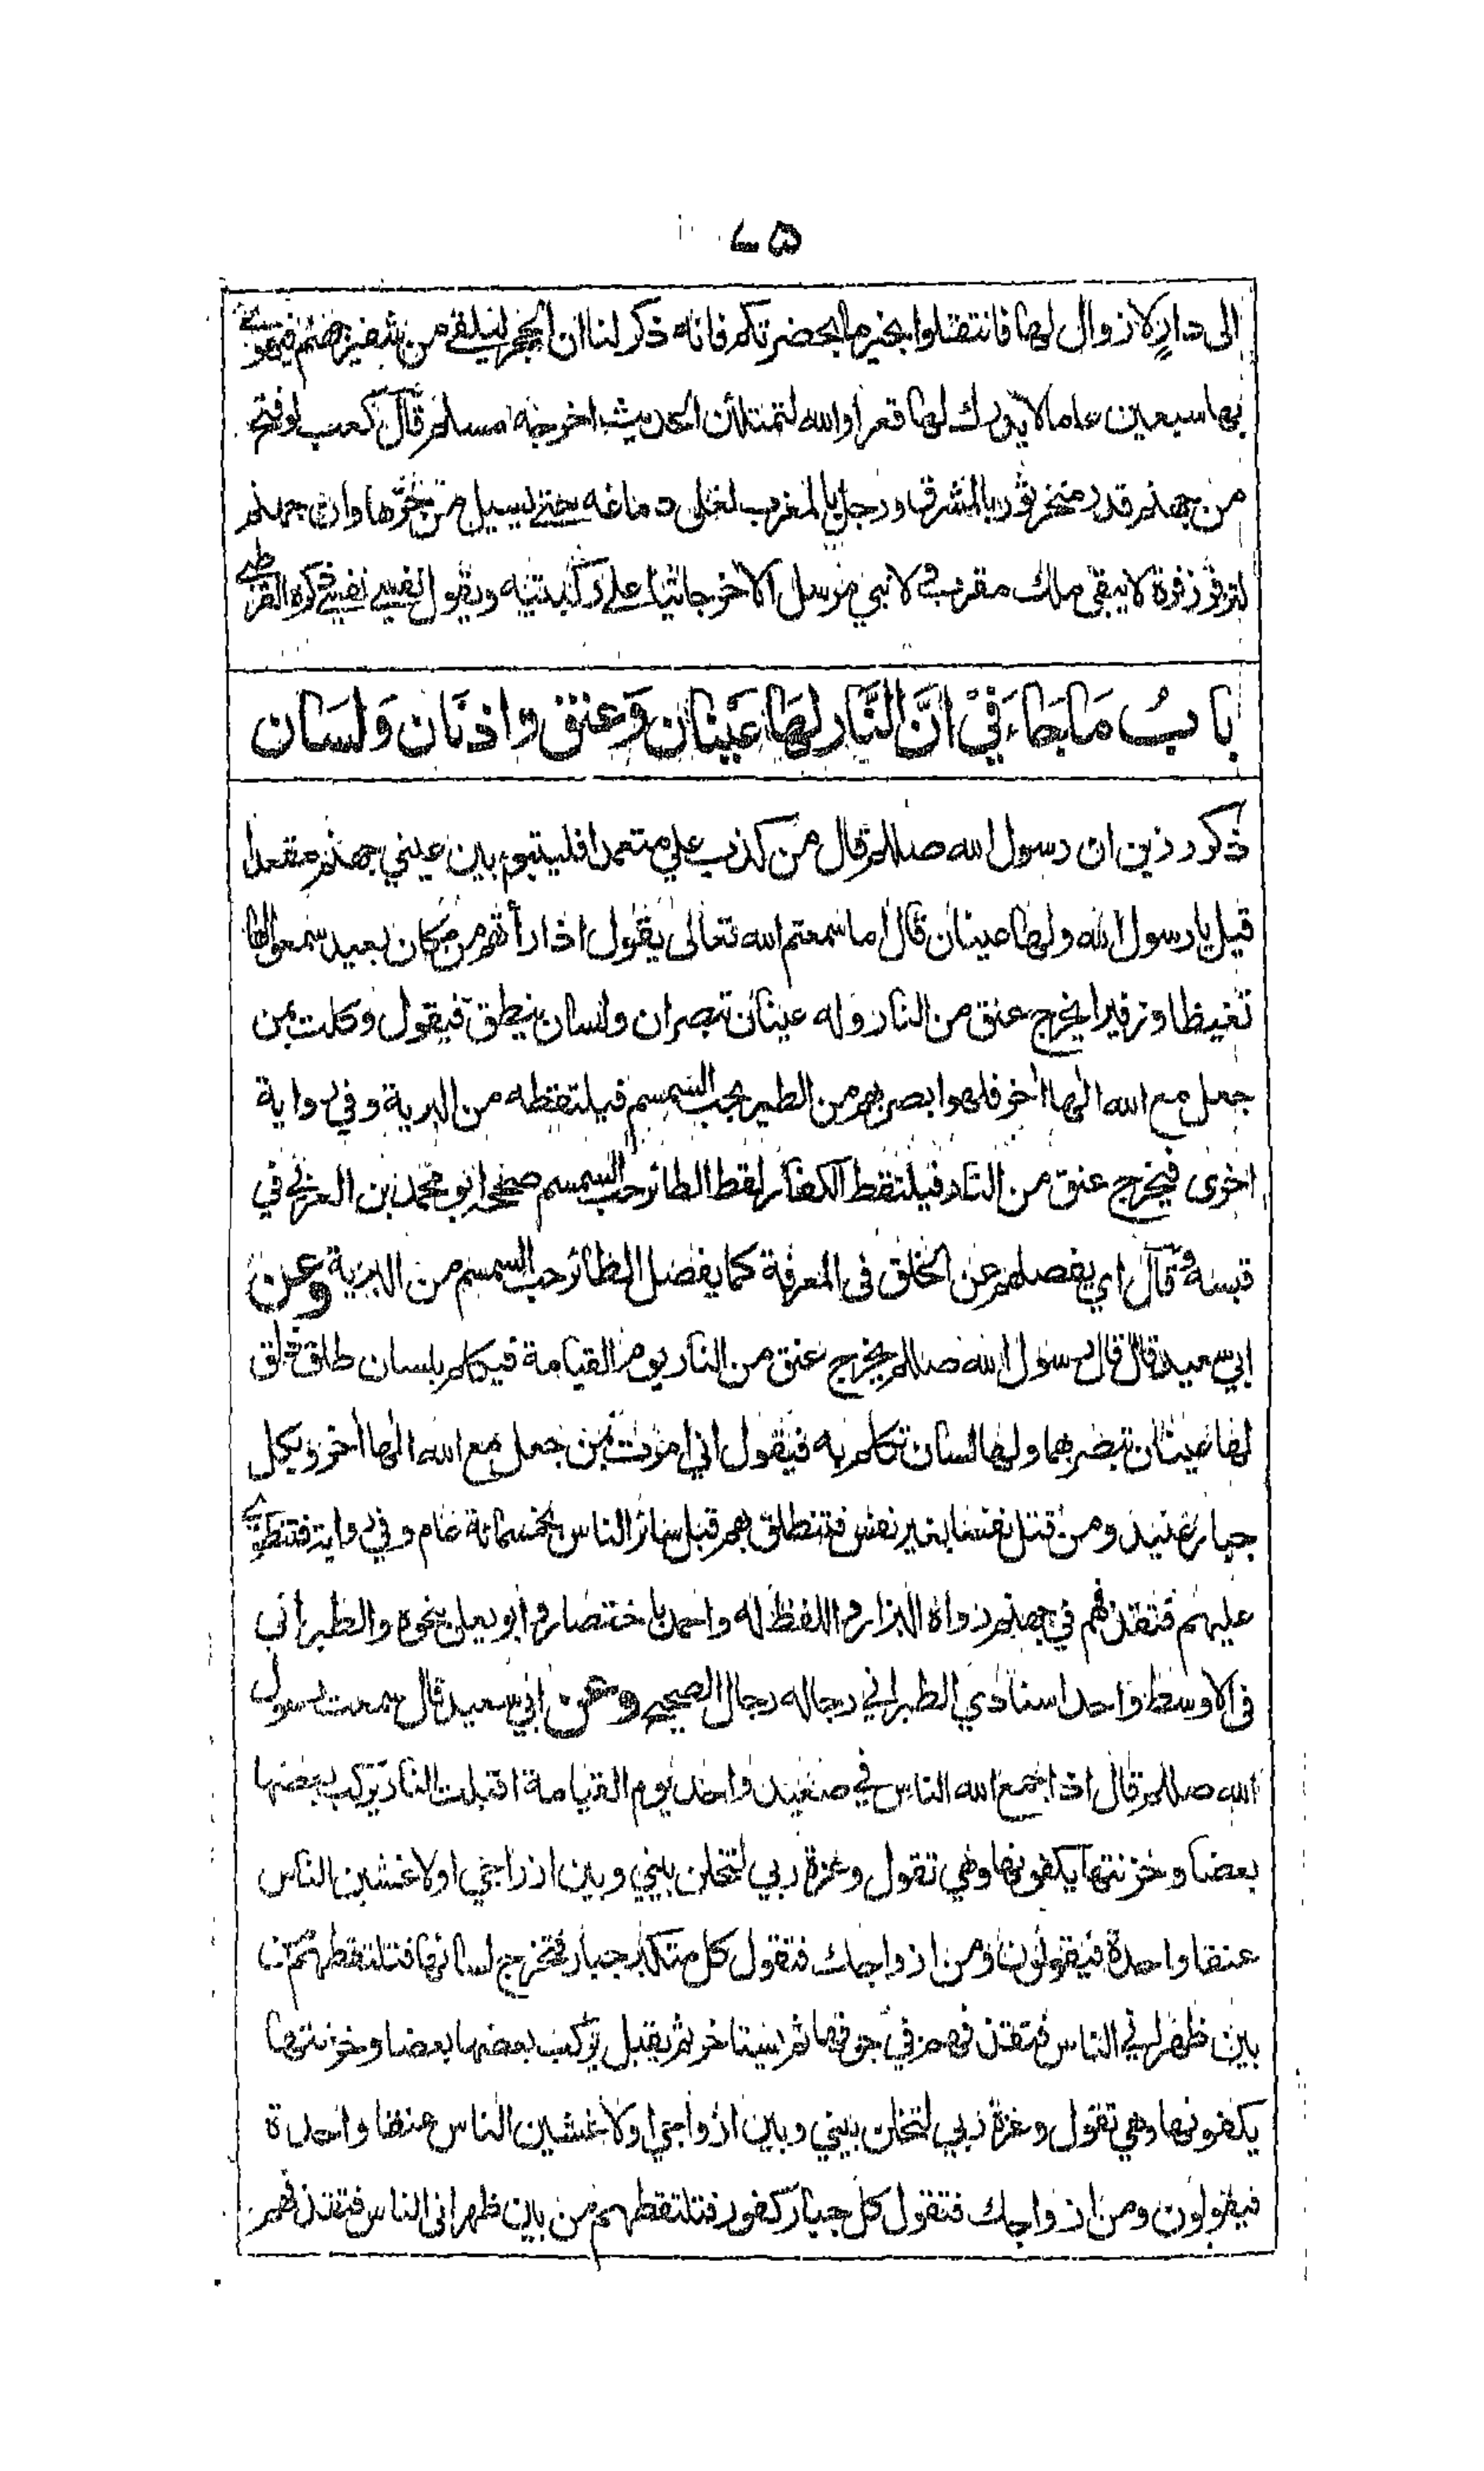 ٤٥
الى دارٍ لا زوال لها فانتقلوا بخير ما بحضرتكم فانه ذكر لنا ان الحجر ليلقى من شفير جهنم فيهوي
بها سبعين عاما لا يدرك لها قعرا والله لتمتلأن الحديث اخرجه مسلم قال كعب لو فتح
من جهنم قدر منخر ثور بالمشرق ورجل بالمغرب لغلى دماغه حتى يسيل من حرها وان جهنم
لتزفر زفرة لا يبقى ملك مقرب ولا نبي مرسل الا خر جاثيا على ركبتيه ويقول نفسي نفسي ذكره القرطبي
باب ما جاء في ان النار لها عينان وعنق واذنان ولسان
ذكر رزين ان رسول الله صللم قال من كذب علي متعمدا فليتبوء بين عيني جهنم مقعدا
قيل يا رسول الله ولها عينان قال اما سمعتم الله تعالى يقول اذا رأتهم من مكان بعيد سمعوا لها
تغيظا وزفيرا يخرج عنق من النار وله عينان تبصران ولسان ينطق فيقول وكلت بمن
جعل مع الله الها اخر فلهو ابصر بهم من الطير بحب السمسم فيلتقطه من البرية وفي رواية
اخرى فيخرج عنق من النار فيلتقط الكفار لقط الطائر حب السمسم صححه ابو محمد بن العربي في
قبسه وقال اي يفصلهم عن الخلق فى المعرفة كما يفصل الطائر حب السمسم من البرية وعن
ابي سعيد قال قال رسول الله صللم يخرج عنق من النار يوم القيامة فيكلم بلسان طلق ذلق
لها عينان تبصر بهما ولها لسان تكلم به فيقول اني امرت بمن جعل مع الله الها اخر وبكل
جبار عنيد ومن قتل نفسا بغير نفس فتنطلق بهم قبل سائر الناس بخمسمائة عام وفي رواية فتنطوي
عليهم فتقذفهم في جهنم رواه البزار واللفظ له واحمد باختصار وابو يعلى بنحوه والطبراني
فى الاوسط واحد اسنادي الطبراني رجاله رجال الصحيح وعن ابي سعيد قال سمعت رسول
الله صللم قال اذا جمع الله الناس في صعيد واحد يوم القيامة اقبلت النار يركب بعضها
بعضا وخزنتها يكفونها وهي تقول وعزة ربي لتخلن بيني وبين ازواجي او لاغشين الناس
عنقا واحدة فيقولون ومن ازواجك فتقول كل متكبر جبار فتخرج لسانها فتلتقطهم من
بين ظهراني الناس فتقذفهم في جوفها ثم يستاخر ثم يقبل يركب بعضها بعضا وخزنتها
يكفونها وهي تقول وعزة ربي لتخلن بيني وبين ازواجي او لاغشين الناس عنقا واحدة
فيقولون ومن ازواجك فتقول كل جبار كفور فتلتقطهم من بين ظهرانى الناس فتقذفهم